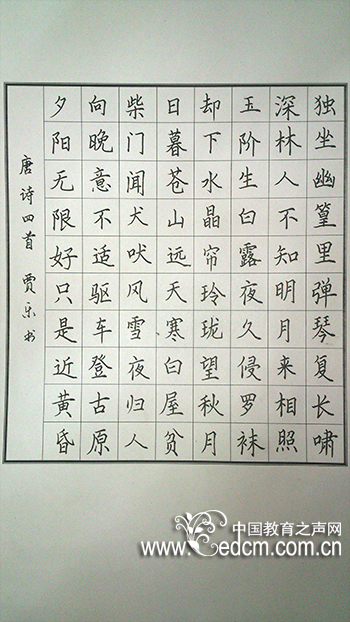 独坐幽篁里弹琴复长啸
深林人不知明月来相照
玉阶生白露夜久侵罗袜
却下水晶帘玲珑望秋月
日暮苍山远天寒白屋贫
柴门闻犬吠风雪夜归人
向晚意不适驱车登古原
夕阳无限好只是近黄昏
唐诗四首 贾乐书
中国教育之声网
www.edcm.com.cn